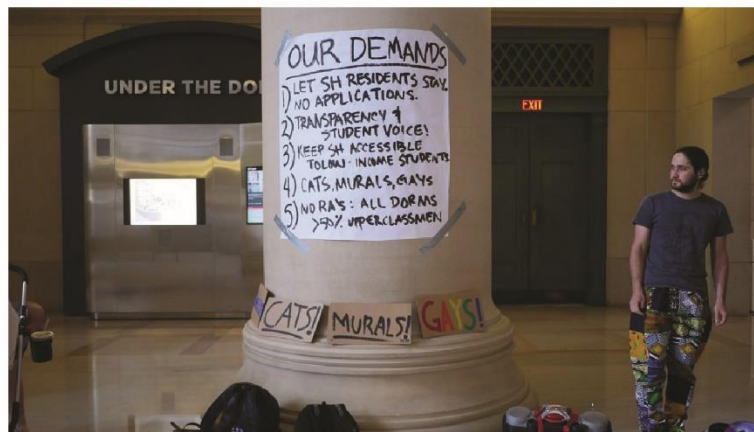 UNDER THE DO
OUR DEMANDS
1) LET SH RESIDENTS STAY.
NO APPLICATIONS.
2) TRANSPARENCY &
STUDENT VOICE!
3) KEEP SH ACCESSIBLE
TO LOW-INCOME STUDENTS
4) CATS, MURALS, GAYS
5) NO RA'S: ALL DORMS
>50% UPPERCLASSMEN
EXIT
CATS!
MURALS!
GAYS!